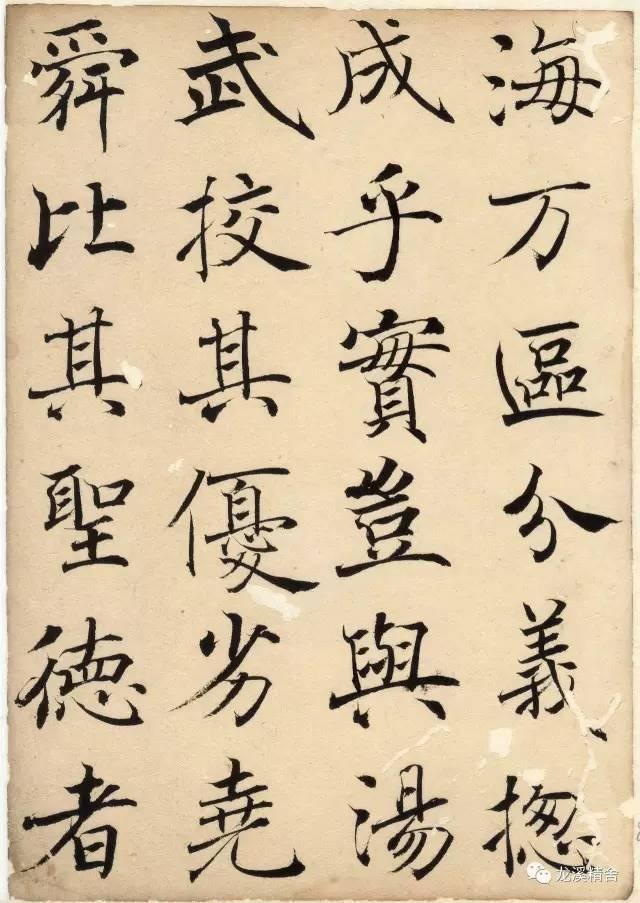 海万區分義揔
成乎實豈與湯
武挍其優劣堯
舜比其聖德者
龙溪精舍